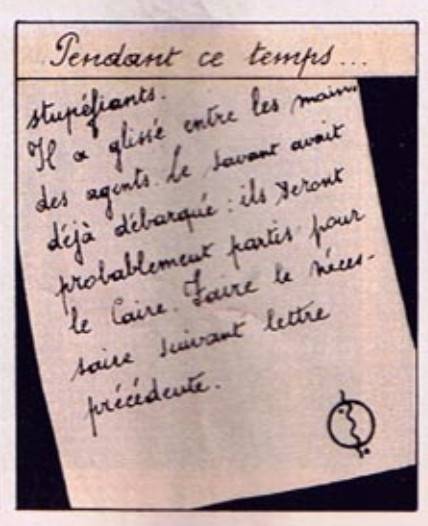 Pendant ce temps...
stupéfiants.
Il a glissé entre les mains
des agents. Le savant avait
déjà débarqué : ils seront
probablement partis pour
le Caire. Faire le néces-
saire suivant lettre
précédente.